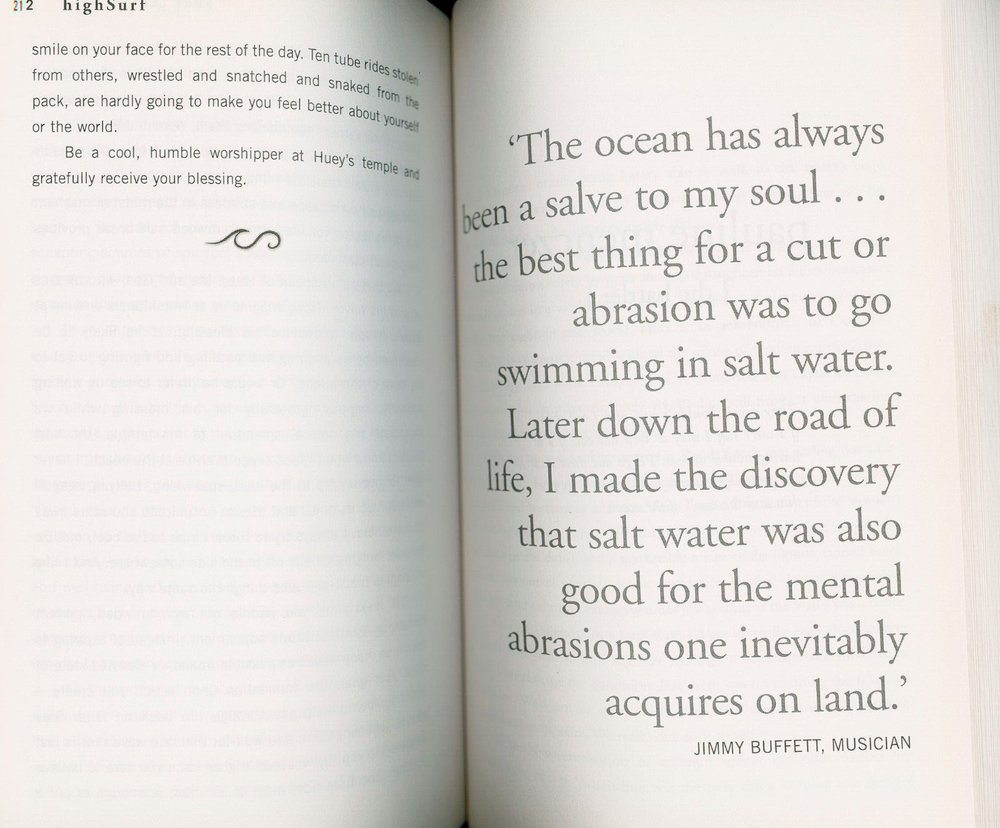 212 highSurf
smile on your face for the rest of the day. Ten tube rides stolen
from others, wrestled and snatched and snaked from the
pack, are hardly going to make you feel better about yourself
or the world.
Be a cool, humble worshipper at Huey's temple and
gratefully receive your blessing.
‘The ocean has always
been a salve to my soul . . .
the best thing for a cut or
abrasion was to go
swimming in salt water.
Later down the road of
life, I made the discovery
that salt water was also
good for the mental
abrasions one inevitably
acquires on land.’
JIMMY BUFFETT, MUSICIAN